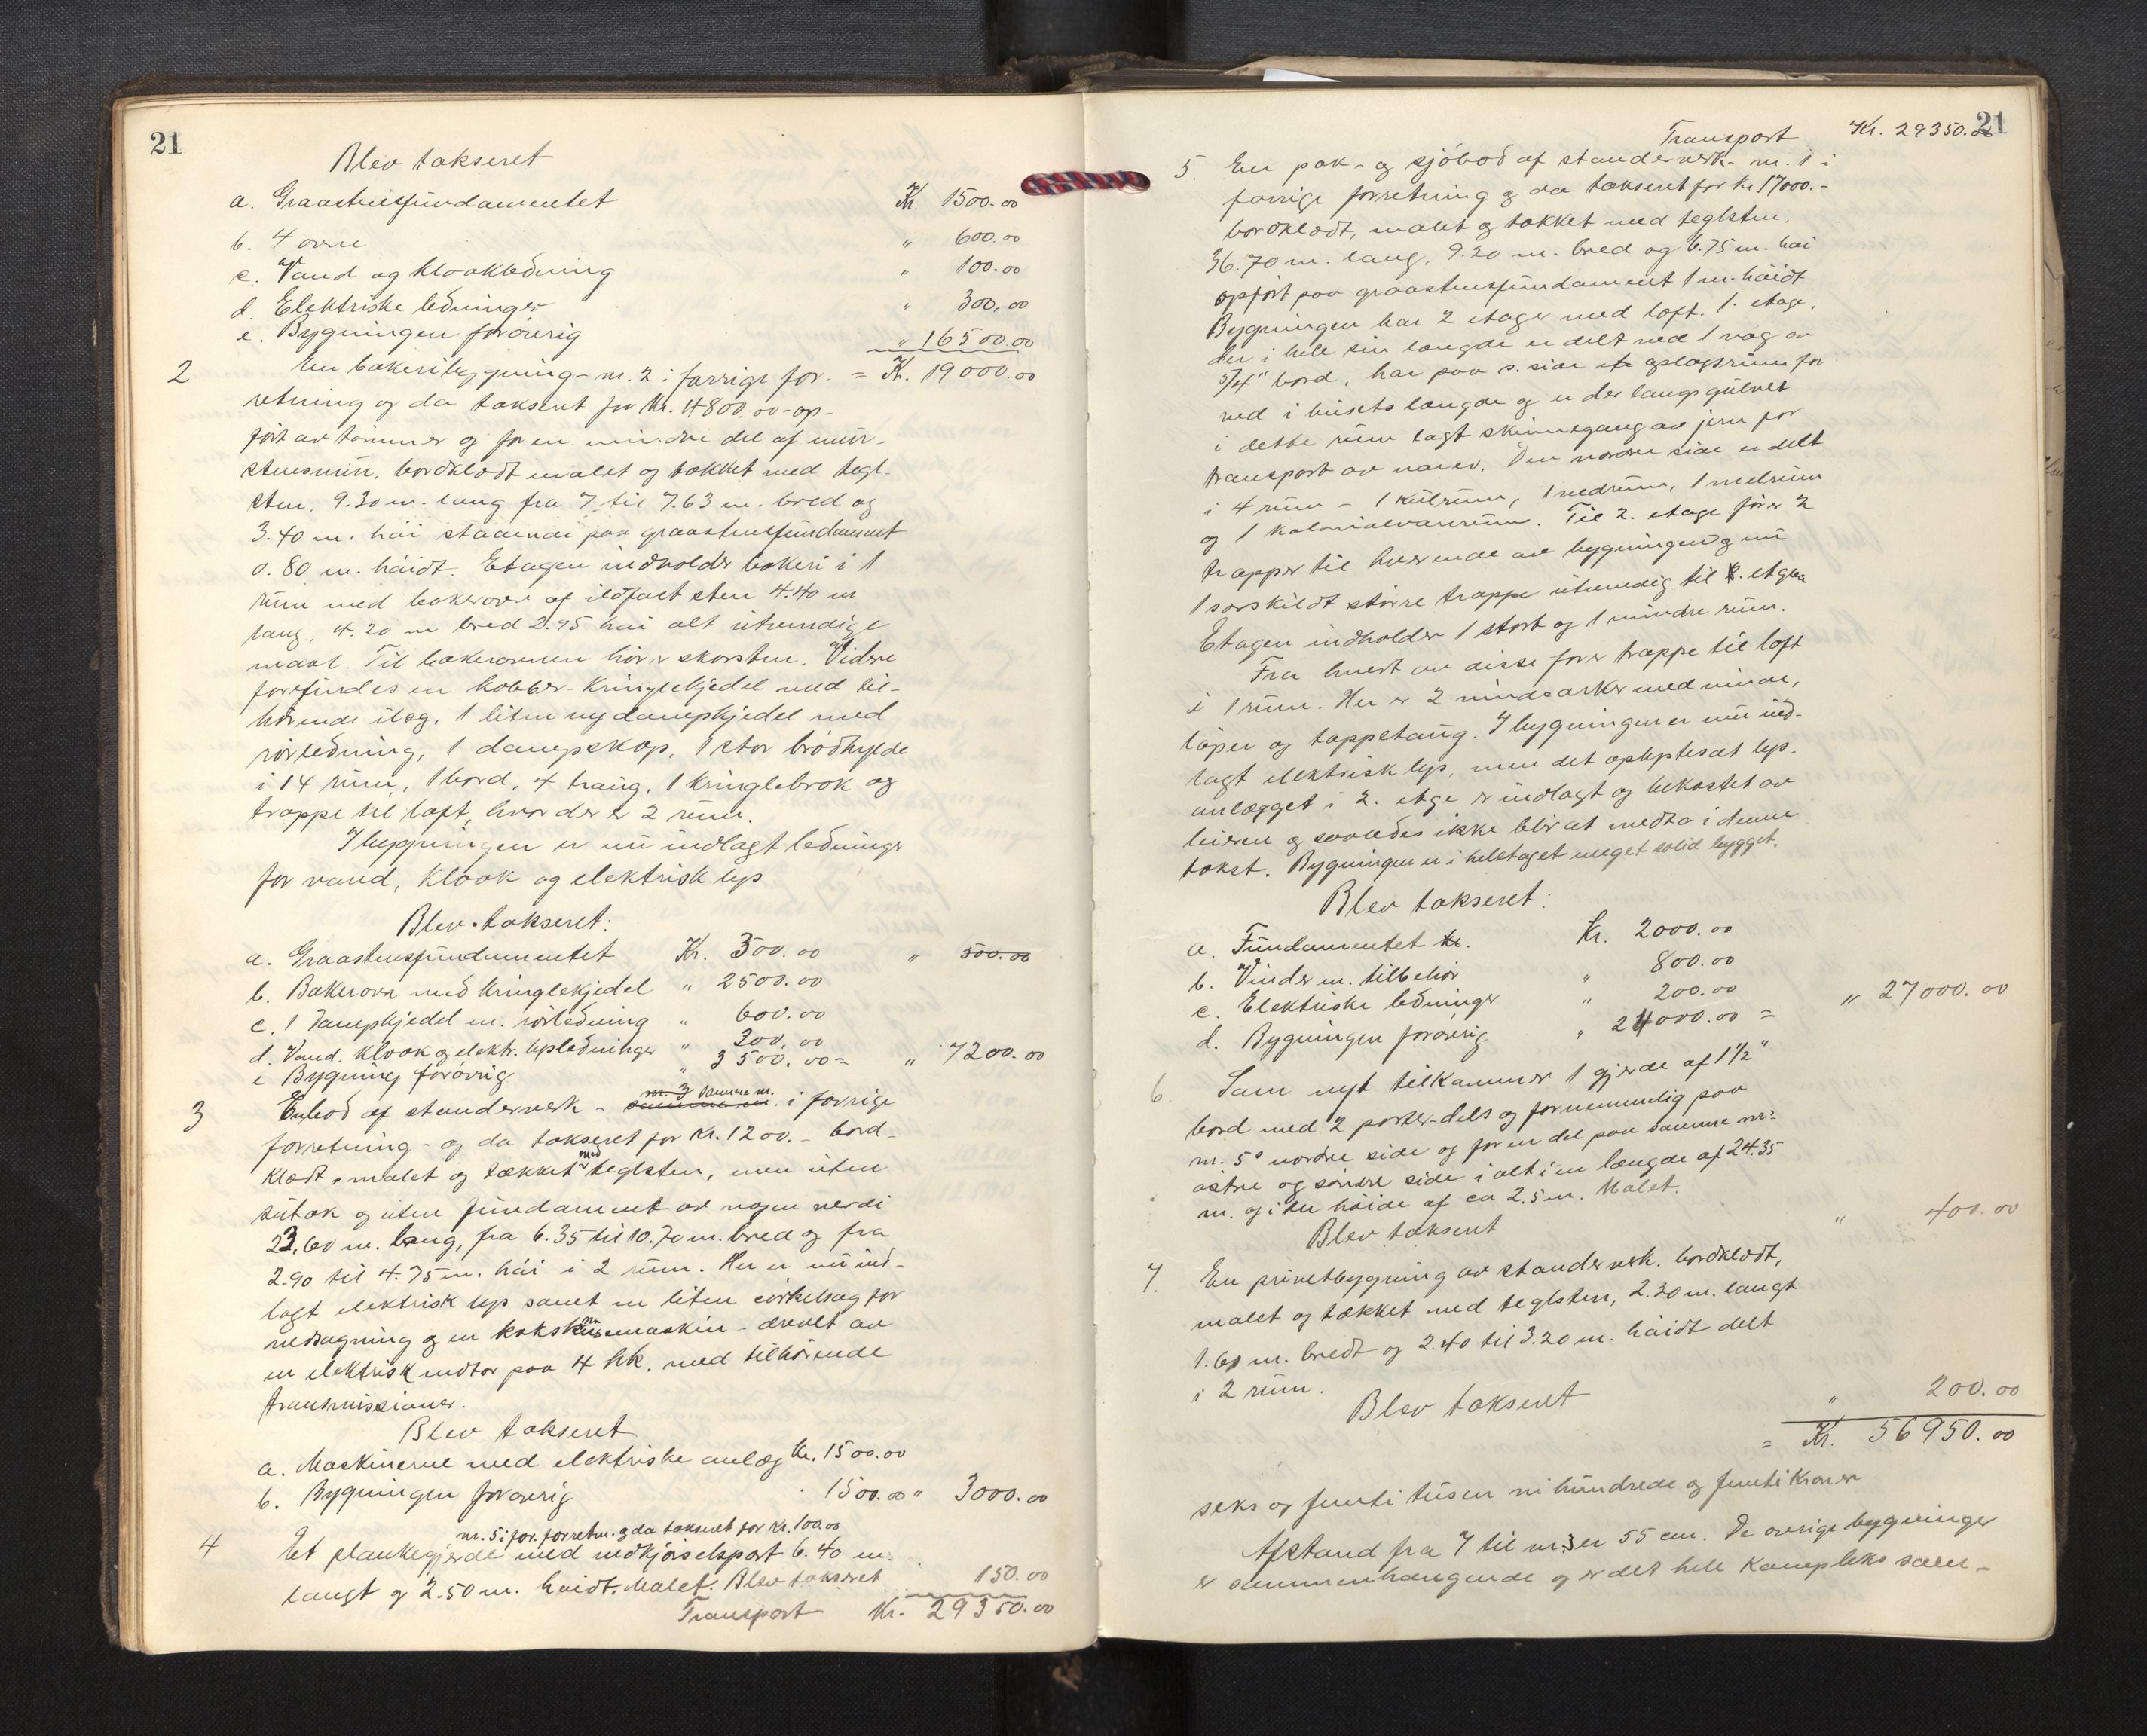 21
Blev takseret
a. Graastensfundamentet Kr. 1500.00
b. 4 ovne " 600.00
c. Vand og kloakledning " 100.00
d. Elektriske ledninger " 300.00
e. Bygningen forøvrig " 16500.00
2 En bakeribygning - nr. 2 i forrige for- = Kr. 19000.00
retning og da takseret for Kr. 4800.00 - op-
ført av tømmer og for en mindre del af mur-
stensmur, bordklædt malet og tækket med tegl-
sten. 9.30 m. lang fra 7 til 7.63 m. bred og
3.40 m. høi staaende paa graastensfundament
0.80 m. høidt. Etagen indholder bakeri i 1
rum med bakerovn af ildfast sten 4.40 m
lang, 4.20 m bred 2.95 høi alt utvendige
maal. Til bakerovnen hører skorsten. Videre
forefindes en kobber-kringlekjedel med til-
hørende ilæg, 1 liten ny dampkjedel med
rørledning, 1 dampskap, 1 stor brødhylde
i 14 rum, 1 bord, 4 traug, 1 kringlebrok og
trappe til loft, hvor der er 2 rum.
I bygningen er nu indlagt ledninger
for vand, kloak og elektrisk lys
Blev takseret:
a. Graastensfundamentet Kr. 300.00 " 300.00
b. Bakerovn med kringlekjedel " 2500.00
c. 1 Dampkjedel m. rørledning " 600.00
d. Vand, kloak og elektr. lysledninger " 300.00
e Bygning forøvrig " 3500.00 = " 7200.00
nr. 3 samme nr.
3 En bod af standerverk - samme nr. i forrige
forretning - og da takseret for Kr. 1200.- bord-
klædt, malet og tækket med teglsten, men uten
sutak og uten fundament av nogen verdi
23.60 m. lang, fra 6.35 til 10.70 m. bred og fra
2.90 til 4.75 m. høi i 2 rum. Her er nu ind-
lagt elektrisk lys samt en liten cirkelsag for
vedsagning og en koksknusemaskin - drevet av
en elektrisk motor paa 4 hk. med tilhørende
transmissioner.
Blev takseret
a. Maskinerne med elektriske anlæg Kr. 1500.00
b. Bygningen forøvrig " 1500.00 " 3000.00
nr. 5 i for. forretn. og da takseret for Kr. 100.00
4 Et plankegjerde med indkjørselsport 6.40 m.
langt og 2.50 m. høidt. Malet. Blev takseret 150.00
Transport Kr. 29350.00
21
Transport Kr. 29350.00
5. En pak- og sjøbod af standerverk - nr. 1 i
forrige forretning og da takseret for kr 17000.-
bordklædt, malet og tækket med teglsten.
36.70 m. lang, 9.20 m. bred og 6.75 m. høi
opført paa graastensfundament 1 m. høidt
Bygningen har 2 etager med loft. 1. etage,
der i hele sin længde er delt ved 1 væg av
5/4" bord, har paa s. side et oplagsrum for
ved i husets længde og er der langs gulvet
i dette rum lagt skinnegang av jern for
transport av varer. Den nordre side er delt
i 4 rum - 1 kulrum, 1 vedrum, 1 melrum
og 1 kolonialvarerum. Til 2. etage fører 2
trapper til hver ende av bygningen og nu
1 særskildt større trappe utvendig til 2. etage
Etagen indholder 1 stort og 1 mindre rum.
Fra hvert av disse fører trappe til loft
i 1 rum. Her er 2 vindearker med vinde,
løper og tappetaug. I bygningen er nu ind-
lagt elektrisk lys, men det oplystes at lys-
anlægget i 2. etge er indlagt og bekostet av
leieren og saaledes ikke blir at medta i denne
takst. Bygningen er i helstaget meget solid bygget.
Blev takseret:
a. Fundamentet kr. Kr. 2000.00
b. Vinder m. tilbehør " 800.00
c. Elektriske ledninger " 200.00
d. Bygningen forøvrig " 24000.00 = " 27000.00
6. Som nyt tilkommer 1 gjerde af 1 1/2"
bord med 2 porter - dels og fornemmelig paa
nr. 5's nordre side og for en del paa samme nr:
østre og søndre side i alt i en længde af 24.35
m. og i en høide af ca 2.5 m. Malet.
Blev takseret " 400.00
7. En privetbygning av standerverk, bordklædt,
malet og tækket med teglsten, 2.20 m. langt
1.60 m. bredt og 2.40 til 3.20 m. høidt delt
i 2 rum.
Blev takseret " 200.00
= Kr. 56950.00
seks og femti tusen ni hundrede og femti Kroner
Afstand fra 7 til nr. 3 er 55 cm. De øvrige bygninger
er sammenhængende og er det hele kompleks saale-